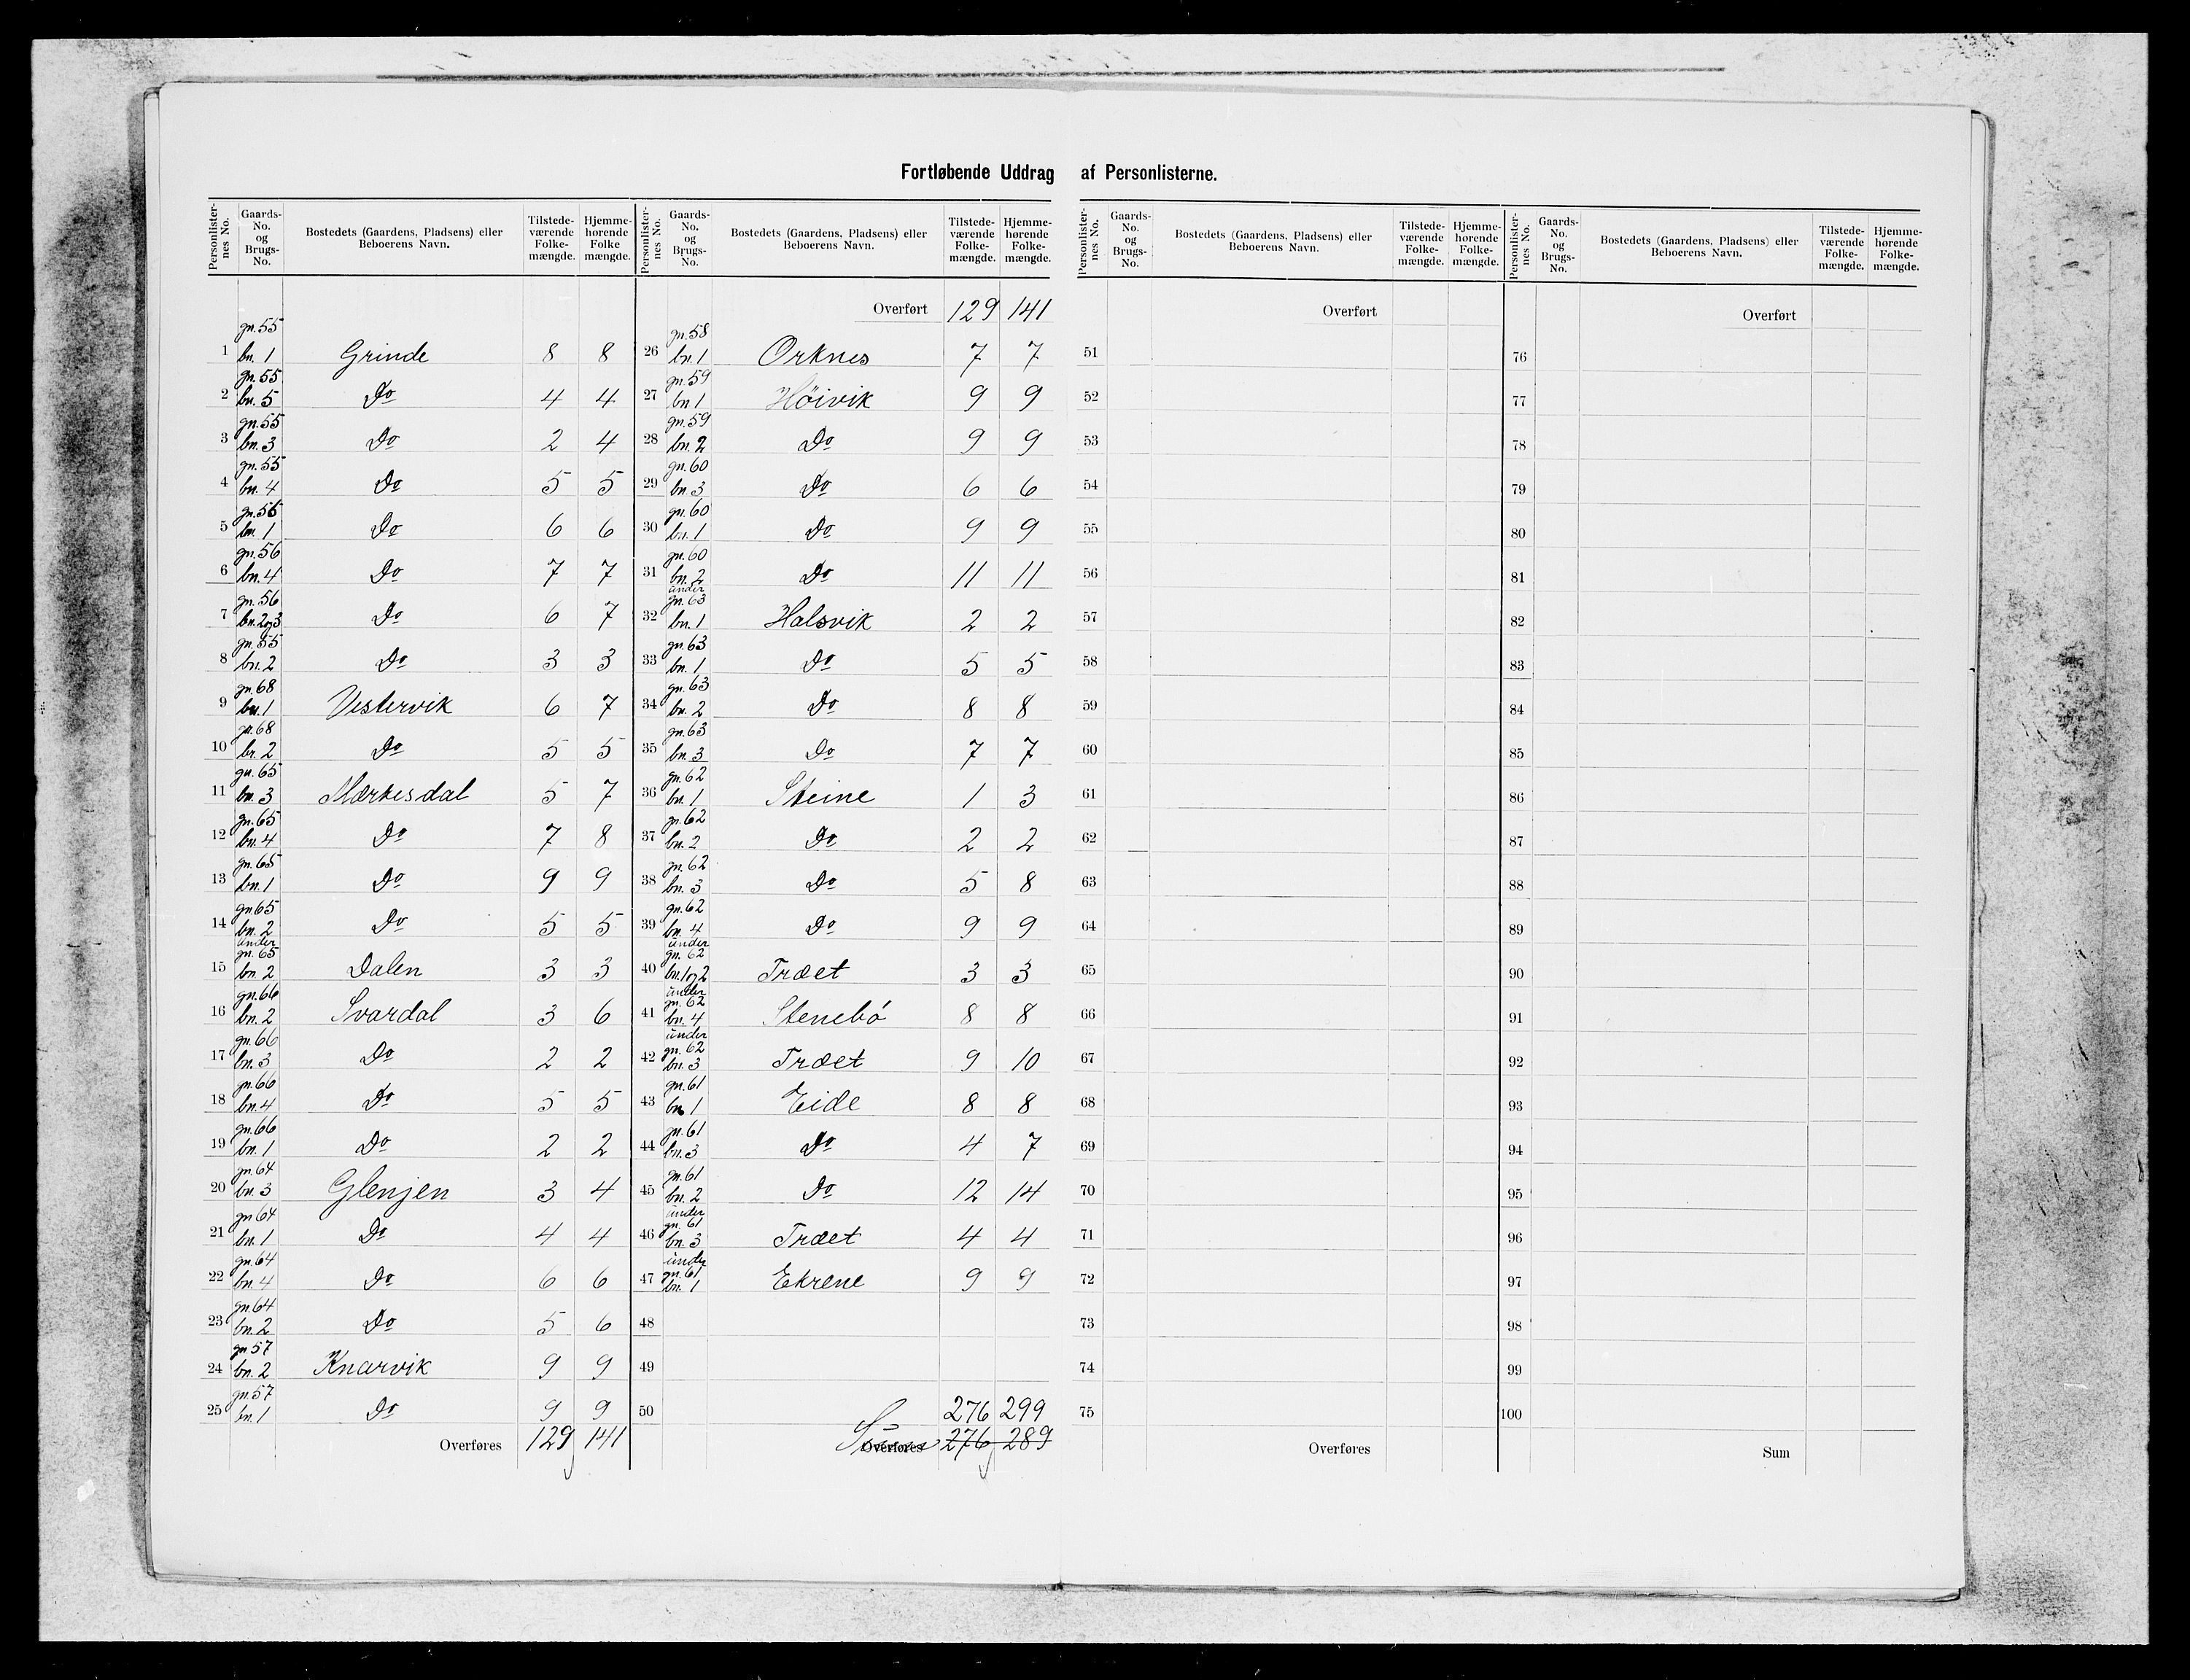 Fortløbende Uddrag af Personlisterne.
Personlister-nes No. | Gaards-No. og Brugs-No. | Bostedets (Gaardens, Pladsens) eller Beboerens Navn. | Tilstede-værende Folke-mængde. | Hjemme-hørende Folke mængde.
1 gn. 55 bn. 1 Grinde 8 8
2 gn. 55 bn. 5 Do 4 4
3 gn. 55 bn. 3 Do 2 4
4 gn. 55 bn. 4 Do 5 5
5 gn. 56 bn. 1 Do 6 6
6 gn. 56 bn. 4 Do 7 7
7 gn. 56 bn. 2og3 Do 6 7
8 gn. 55 bn. 2 Do 3 3
9 gn. 68 bn. 1 Vestervik 6 7
10 gn. 68 br. 2 Do 5 5
11 gn. 65 bn. 3 Mærkesdal 5 7
12 gn. 65 bn. 4 Do 7 8
13 gn. 65 bn. 1 Do 9 9
14 gn. 65 bn. 2 Do 5 5
15 under gn. 65 bn. 2 Dalen 3 3
16 gn. 66 bn. 2 Svardal 3 6
17 gn. 66 bn. 3 Do 2 2
18 gn. 66 bn. 4 Do 5 5
19 gn. 66 bn. 1 Do 2 2
20 gn. 64 bn. 3 Glenjen 3 4
21 gn 64 bn. 1 Do 4 4
22 gn. 64 bn. 4 Do 6 6
23 gn. 64 bn. 2 Do 5 6
24 gn. 57 bn. 2 Knarvik 9 9
25 gn. 57 bn. 1 Do 9 9
Overføres 129 141
Personlister-nes No. | Gaards-No. og Brugs-No. | Bostedets (Gaardens, Pladsens) eller Beboerens Navn. | Tilstede-værende Folke-mængde. | Hjemme-hørende Folke-mængde.
Overført 129 141
26 gn. 58 bn. 1 Orknes 7 7
27 gn. 59 bn 1 Høivik 9 9
28 gn. 59 bn. 2 Do 9 9
29 gn. 60 bn. 3 Do 6 6
30 gn. 60 bn. 1 Do 9 9
31 gn. 60 bn. 2 Do 11 11
32 under gn. 63 bn. 1 Halsvik 2 2
33 gn. 63 bn. 1 Do 5 5
34 gn. 63 bn. 2 Do 8 8
35 gn. 63 bn. 3 Do 7 7
36 gn. 62 bn. 1 Steine 1 3
37 gn. 62 bn. 2 Do 2 2
38 gn. 62 bn. 3 Do 5 8
39 gn. 62 bn. 4 Do 9 9
40 under gn. 62 bn. 1og2 Træet 3 3
41 under gn. 62 bn. 4 Stenebó 8 8
42 under gn. 62 bn. 3 Træet 9 10
43 gn. 61 bn 1 Eide 8 8
44 gn. 61 bn. 3 Do 4 7
45 gn. 61 bn. 2 Do 12 14
46 under gn. 61 bn. 3 Træet 4 4
47 under gn. 61 bn. 1 Ekrene 9 9
48
49
50 276 299
Overføres Summa 276 289
Personlister-nes No. | Gaards-No. og Brugs-No. | Bostedets (Gaardens, Pladsens) eller Beboerens Navn. | Tilstede-værende Folke-mængde. | Hjemme-hørende Folke-mængde.
Overført
51
52
53
54
55
56
57
58
59
60
61
62
63
64
65
66
67
68
69
70
71
72
73
74
75
Overføres
Personlister-nes No. | Gaards-No. og Brugs-No. | Bostedets (Gaardens, Pladsens) eller Beboerens Navn. | Tilstede-værende Folke-mængde. | Hjemme-hørende Folke-mængde.
Overført
76
77
78
79
80
81
82
83
84
85
86
87
88
89
90
91
92
93
94
95
96
97
98
99
100
Sum